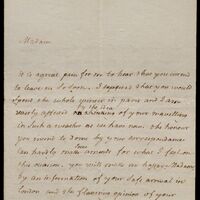 Madam
it is a great pain for me to hear that you intend
to leave us so soon. I supposed that you would
spend the whole winter in paris and I am
by the idea
nearly afraid of your travelling
in such a weather as we have now. the honour
you meant to done by your correspondance
can hardly make amends for what I feel on
this occasion. you will make me happy Madam
by an information of your safe arrival in
London and the flattering opinion of your